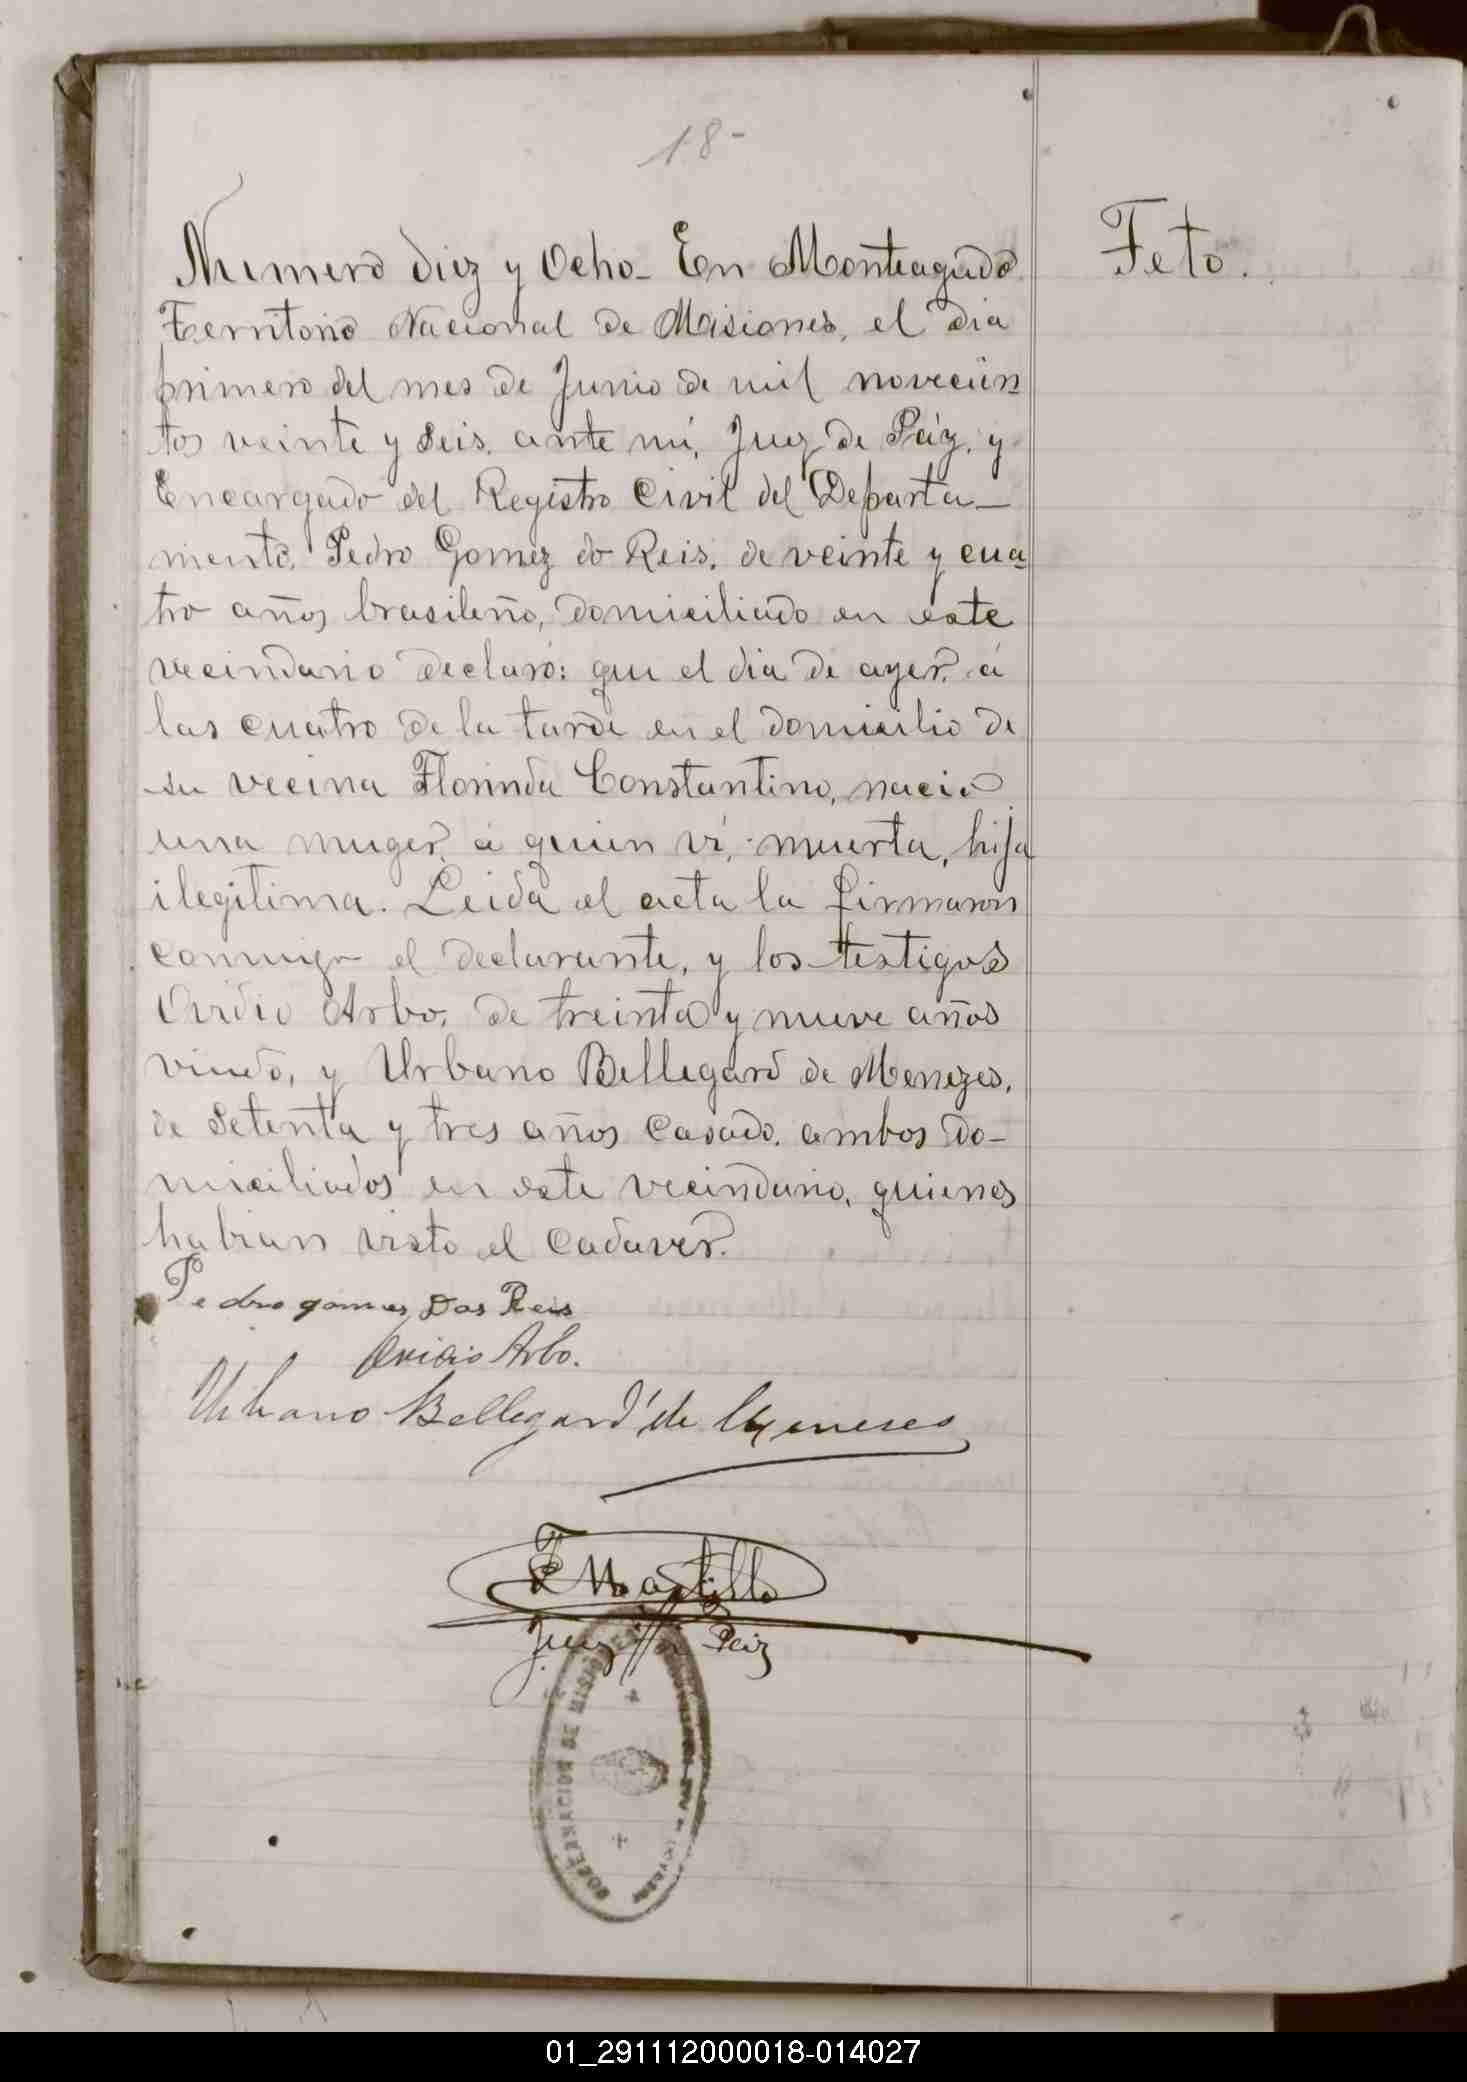 18-
Numero diez y Ocho- En Monteagudo
Feto.
Territorio Nacional de Misiones, el dia
primero del mes de Junio de mil novecien=
tos veinte y seis. ante mi, Juez de Páz, y
Encargado del Registro Civil del Departa-
mento, Pedro Gomez do Reis, de veinte y cua=
tro años brasileño, domiciliado en este
vecindario declaró: que el dia de ayer á
las cuatro de la tarde en el domicilio de
su vecina Florinda Constantino, nació
una muger, á quien ví, muerta, hija
ilegitima. Leida el acta la firmaron
conmigo el declarante, y los testigos
Ovidio Arbo, de treinta y nueve años
viudo, y Urbano Bellegard de Menezes,
de setenta y tres años casado. ambos do-
miciliados en este vecindario, quienes
habian visto el cadaver.
Pedro gomes Dos Reis
Ovidio Arbo.
Urbano Bellegard de Meneses
Juez de Paz
GOBERNACION DE MISIONES
01_291112000018-014027